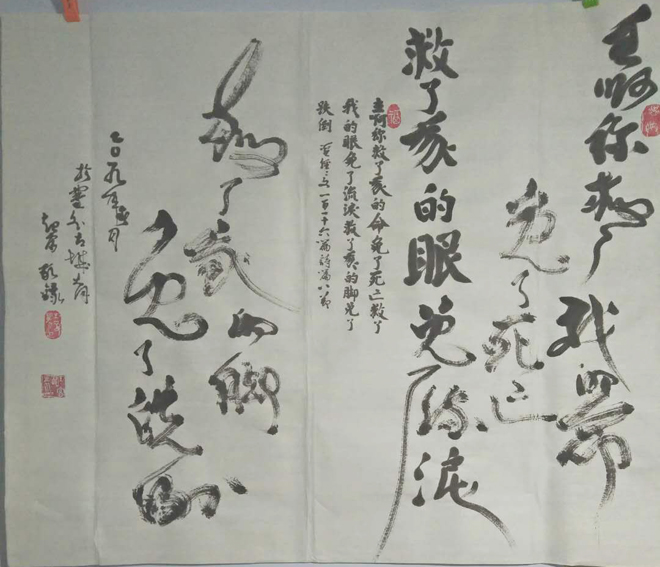 主啊你救了我的命
免了死亡
救了我的眼免了流泪
主啊你救了我的命免了死亡救了
我的眼免了流泪救了我的脚免了
跌倒 圣经 一百十六篇诗篇八节
救了我的脚
免了跌倒
二〇 九年 月
敬录